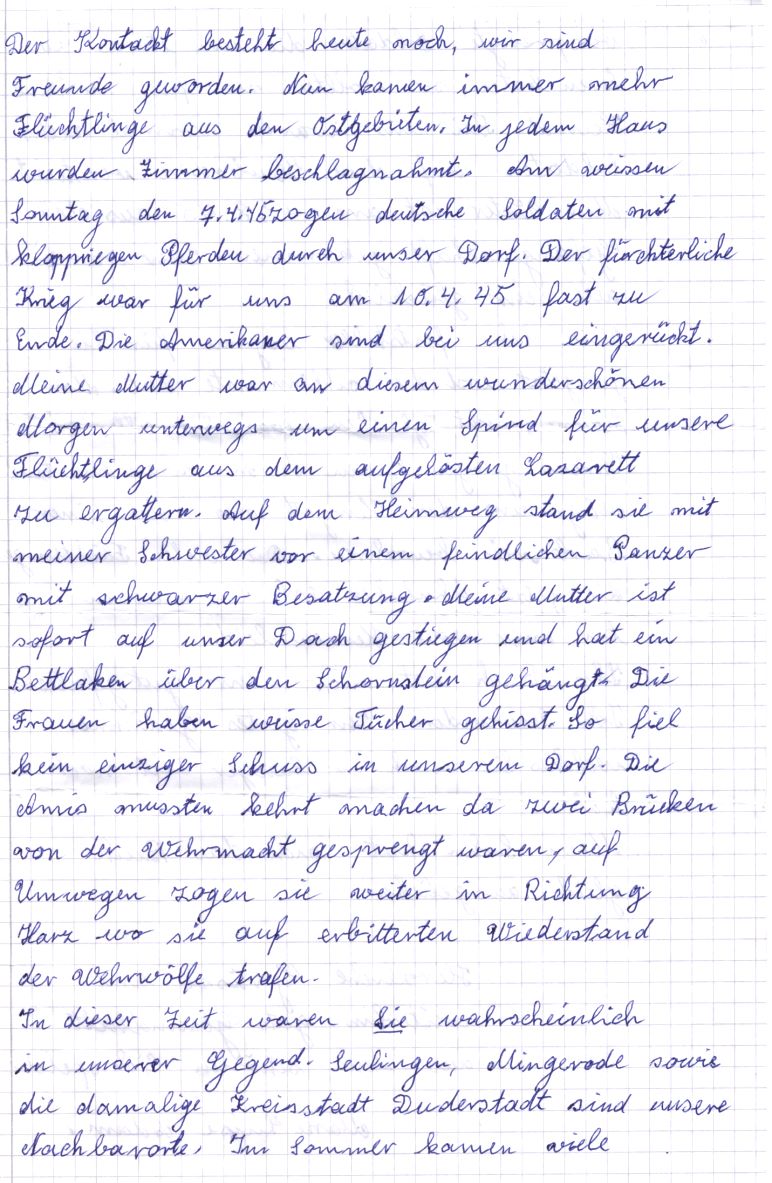 Der Kontackt besteht heute noch, wir sind
Freunde geworden. Nun kamen immer mehr
Flüchtlinge aus den Ostgebieten. In jedem Haus
wurden Zimmer beschlagnahmt. Am weissen
Sonntag den 7.4.45 zogen deutsche Soldaten mit
klapprigen Pferden durch unser Dorf. Der fürchterliche
Krieg war für uns am 10.4.45 fast zu
Ende. Die Amerikaner sind bei uns eingerückt.
Meine Mutter war an diesem wunderschönen
Morgen unterwegs um einen Spind für unsere
Flüchtlinge aus dem aufgelösten Lazarett
zu ergattern. Auf dem Heimweg stand sie mit
meiner Schwester vor einem feindlichen Panzer
mit schwarzer Besatzung. Meine Mutter ist
sofort auf unser Dach gestiegen und hat ein
Bettlaken über den Schornstein gehängt. Die
Frauen haben weisse Tücher gehisst. So fiel
kein einziger Schuss in unserem Dorf. Die
Amis mussten kehrt machen da zwei Brücken
von der Wehrmacht gesprengt waren, auf
Umwegen zogen sie weiter in Richtung
Harz wo sie auf erbitterten Wiederstand
der Wehrwölfe trafen.
In dieser Zeit waren Sie wahrscheinlich
in unserer Gegend. Seulingen, Mingerode sowie
die damalige Kreisstadt Duderstadt sind unsere
Nachbarorte. Im Sommer kamen viele